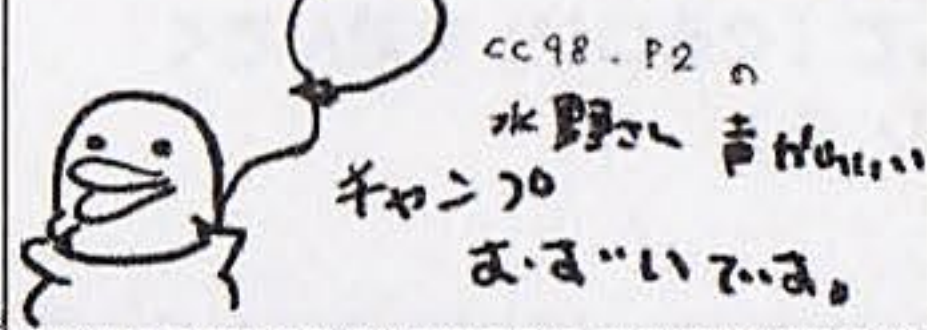 CC98.P2 の
水野さん 声がかわいい
キャンプ
むずいです。